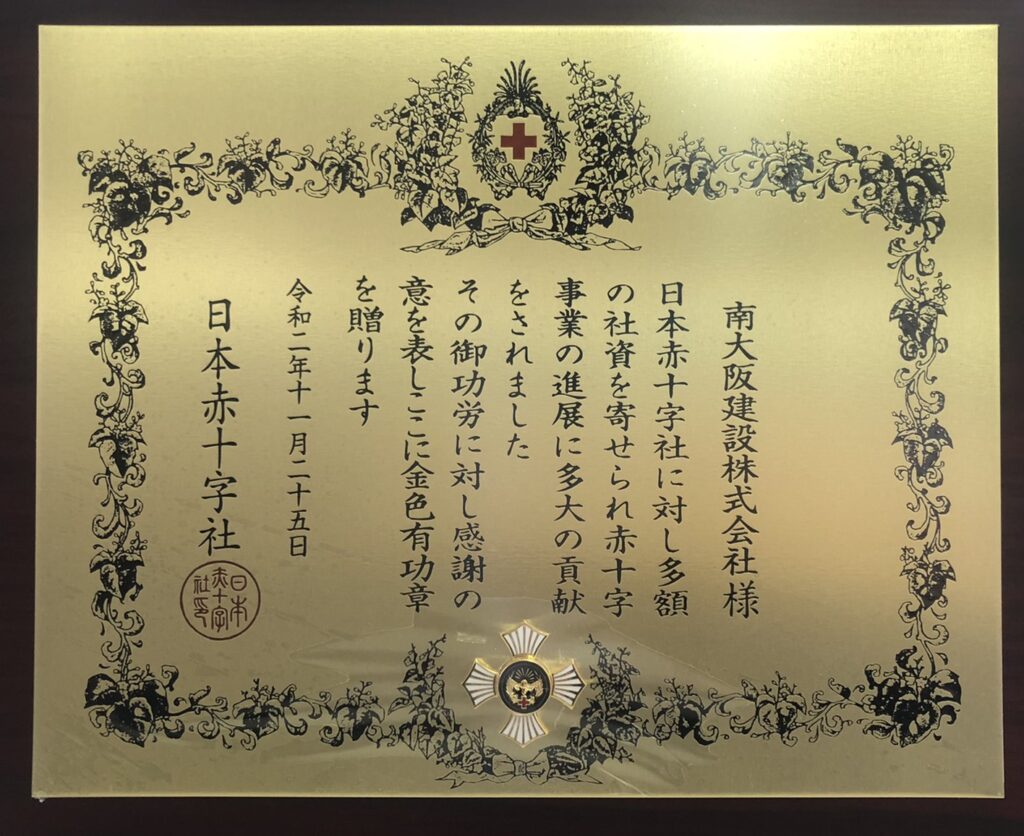 南大阪建設株式会社様
日本赤十字社に対し多額
の社資を寄せられ赤十字
事業の進展に多大の貢献
をされました
その御功労に対し感謝の
意を表しここに金色有功章
を贈ります
令和二年十一月二十五日
日本赤十字社
日本
赤十字
社印